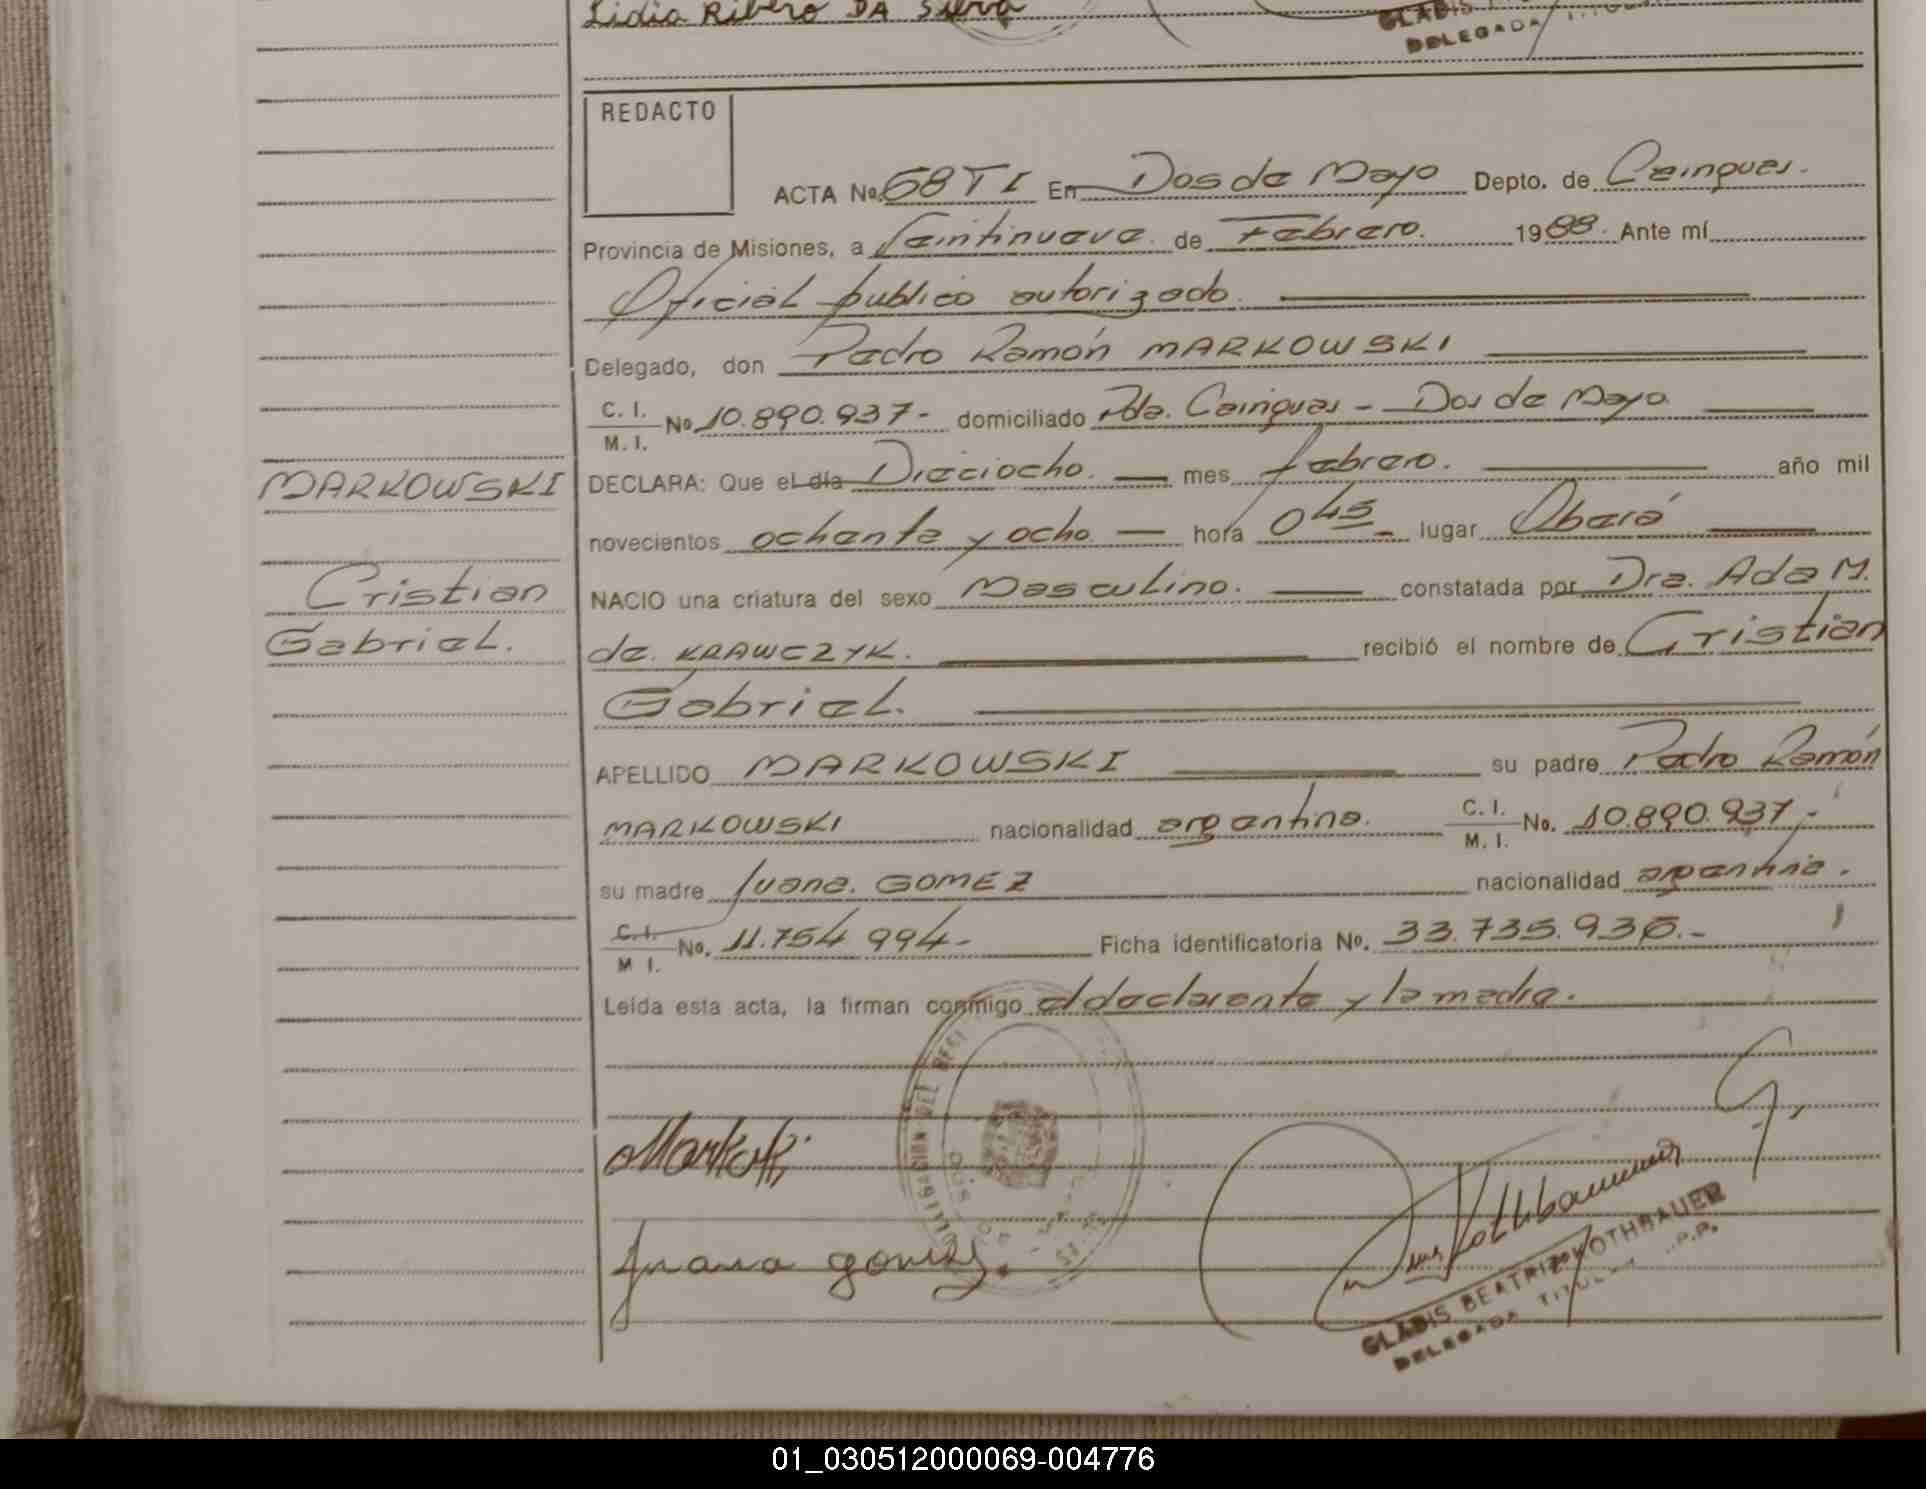 Lidia Ribero DA Silva
GLADIS
DELEGADA TITULAR
REDACTO
ACTA No. 68 T I En Dos de Mayo Depto. de Cainguas.
Provincia de Misiones, a Veintinueve de Febrero. 1988. Ante mí
Oficial publico autorizado.
Delegado, don Pedro Ramón MARKOWSKI
C. I.
M. I. No 10.890.937- domiciliado Pda. Cainguas - Dos de Mayo.
MARKOWSKI DECLARA: Que el día Dieciocho. mes febrero. año mil
novecientos ochenta y ocho hora 0 45 - lugar Oberá
Cristian NACIO una criatura del sexo Masculino. constatada por Dra. Ada M.
Gabriel. de KRAWCZYK. recibió el nombre de Cristian
Gabriel.
APELLIDO MARKOWSKI su padre Pedro Ramón
MARKOWSKI nacionalidad argentina. C. I.
M. I. No. 10.890.937-
su madre Juana GOMEZ nacionalidad argentina.
C. I.
M I. No. 11.754 994- Ficha identificatoria No. 33.735.936.-
Leída esta acta, la firman conmigo el declarante y la madre.
DELEGACION DEL REGI
DOS
Juana gomez.
GLADIS BEATRIZ KOTHBAUER
DELEGADA TITULAR P.P.
01_030512000069-004776